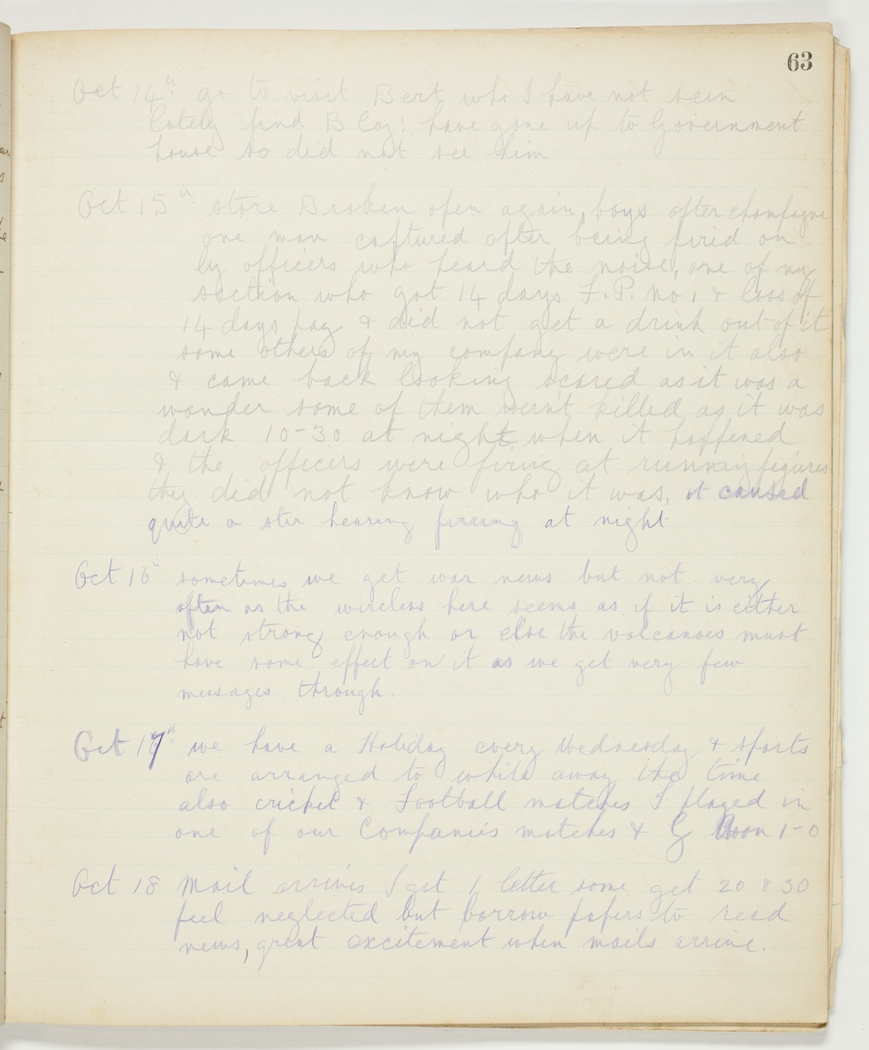 63
Oct 14th go to visit Bert who I have not seen
lately find B Coy: have gone up to Government
house so did not see him
Oct 15th store Broken open again, boys after champigne
one man captured after being fired on
by officers who heard the noise, one of my
section who got 14 days F.P. No 1 & loss of
14 days pay & did not get a drink out of it
some others of my company were in it also
& came back looking scared as it was a
wonder some of them wern't killed as it was
dark 10-30 at night when it happened
& the officers were firing at running figures
they did not know who it was, it caused
quite a stir hearing fireing at night
Oct 16th sometimes we get war news but not very
often as the wireless here seems as if it is either
not strong enough or else the volcanoes must
have some effect on it as we get very few
messages through.
Oct 17th we have a Holiday every Wednesday & sports
are arranged to while away the time
also cricket & Football matches I played in
one of our Companies matches & G won 1-0
Oct 18 Mail arrives I get 1 letter some get 20 & 30
feel neglected but borrow papers to read
news, great excitement when mails arrive.